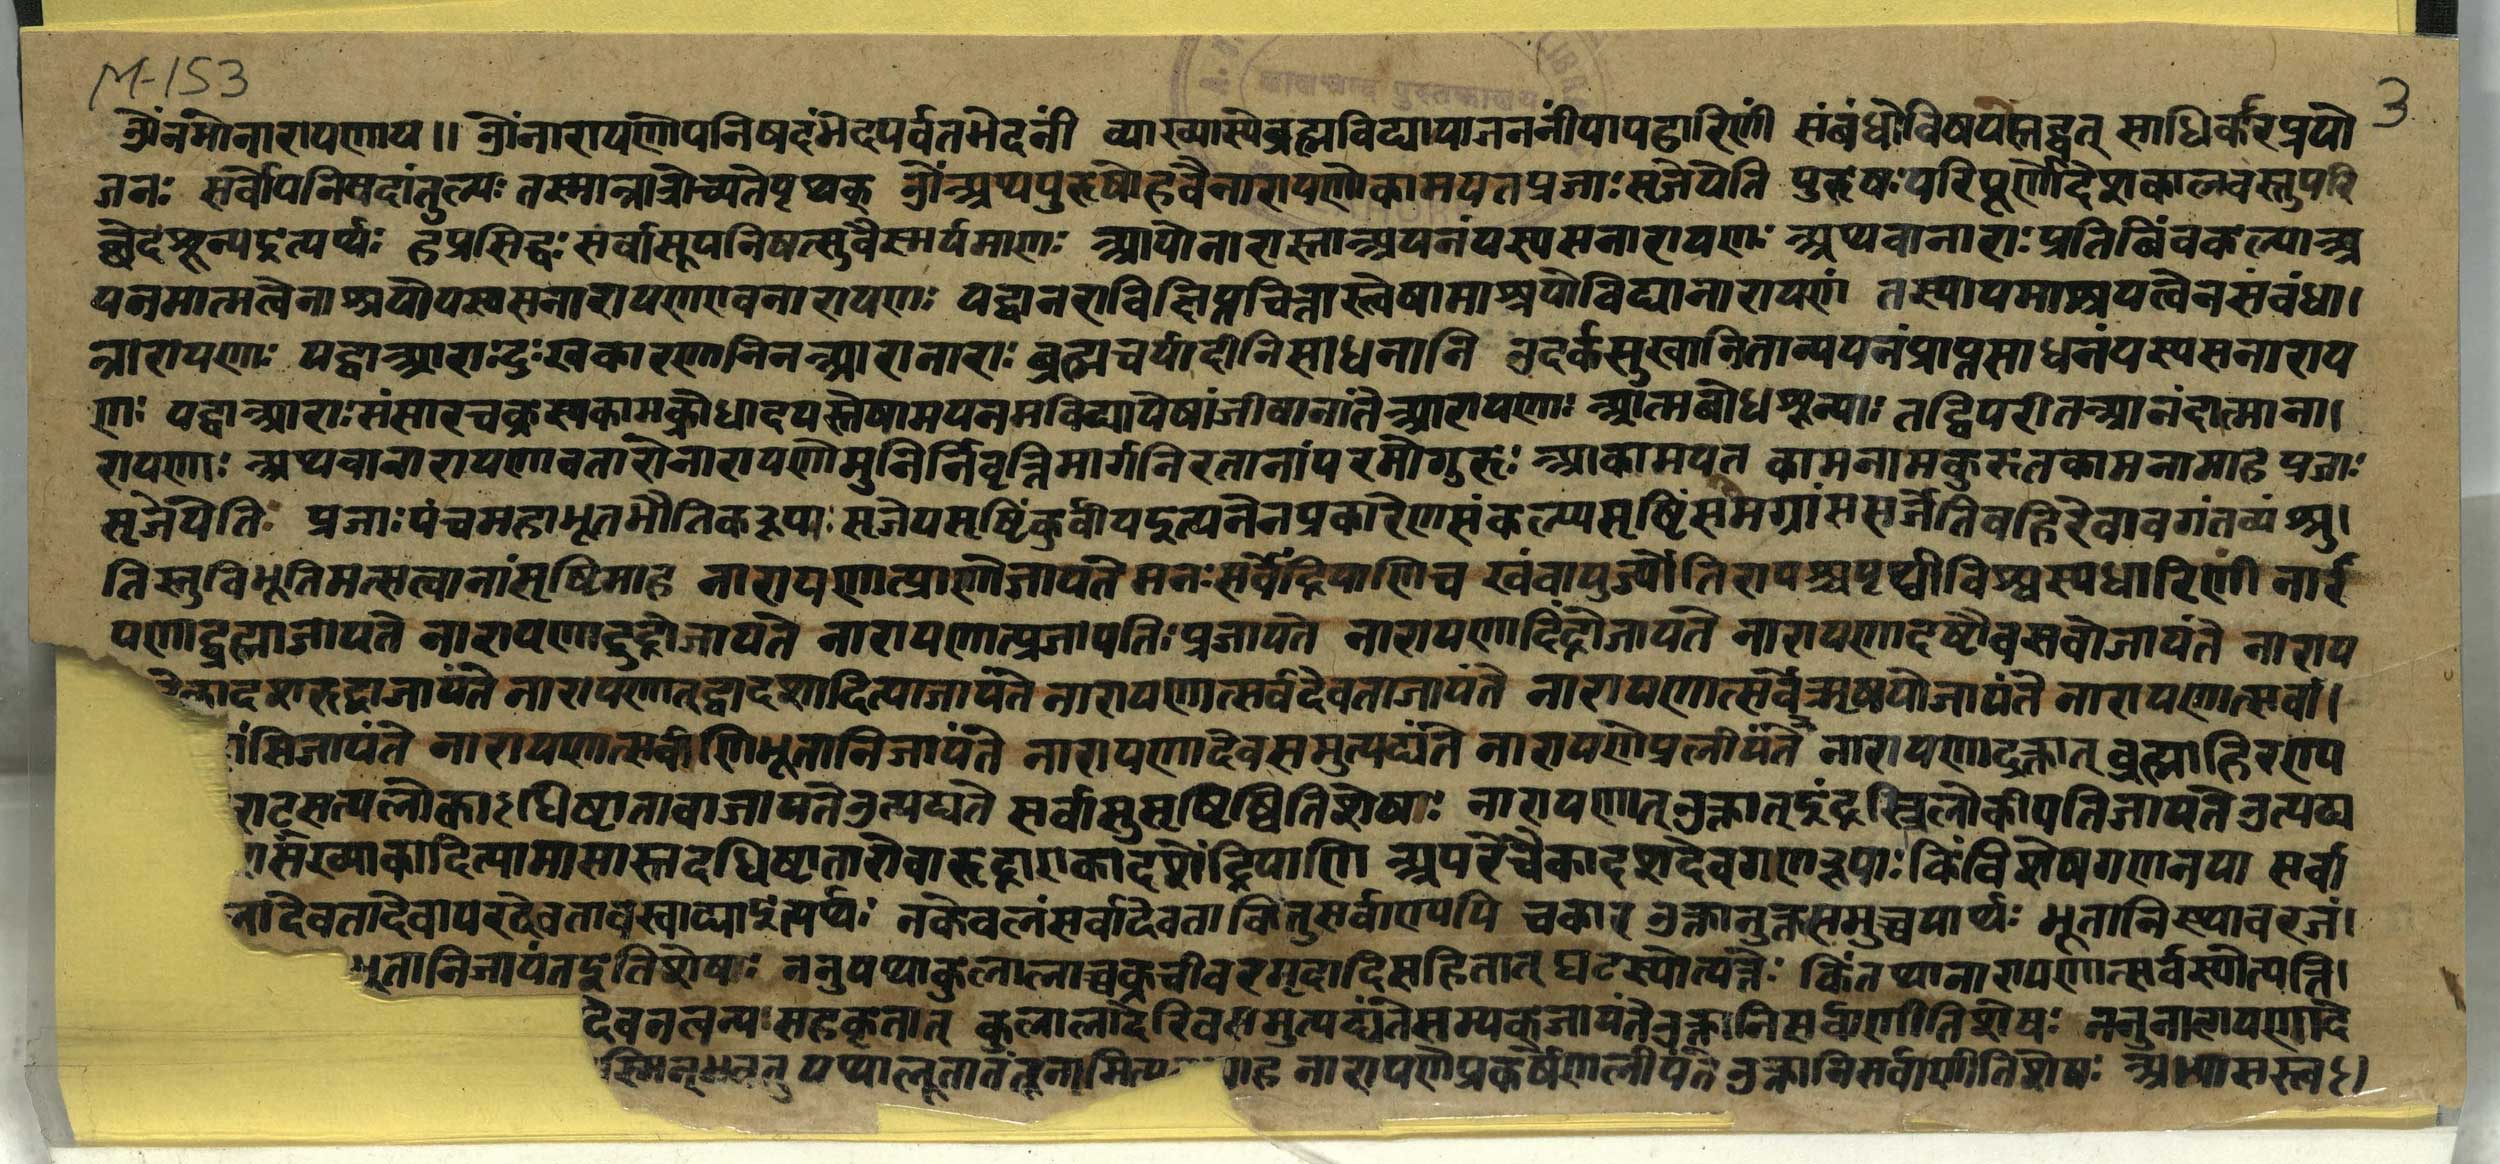 M-153
3
लालचन्द पुस्तकालय
ओंनमोनारायणाय॥ ओंनारायणोपनिषदंभेदपर्वतभेदनीं व्याख्यास्येब्रह्मविद्यायाजननींपापहारिणीं संबंधोविषयस्तद्वत् साधिकारप्रयो
जनः सर्वोपनिषदांतुल्यः तस्मान्नात्रोच्यतेपृथक् ओंअथपुरुषोहवैनारायणोकामयतप्रजाःसृजेयेति पुरुषःपरिपूर्णोदेशकालवस्तुपरि
छेदशून्यइत्यर्थः हप्रसिद्धःसर्वासूपनिषत्सुवैस्मर्यमाणः आपोनारास्ताअयनंयस्यसनारायणः अथवानाराःप्रतिबिंबकल्पाअ
यनमात्मत्वेनाश्रयोयस्यसनारायणएवनारायणः यद्वानराविक्षिप्तचित्तास्तेषामाश्रयोविद्यानारायणं तस्यायमाश्रयत्वेनसंबंधा।
न्नारायणः यद्वाआराःदुःखकारणनिनआरानाराः ब्रह्मचर्यादीनिसाधनानि उदर्कसुखानितान्ययनंप्राप्तसाधनंयस्यसनाराय
णः यद्वाआराःसंसारचक्रस्यकामक्रोधादयस्तेषामयनमविद्यायेषांजीवानांतेआरायणाः आत्मबोधशून्याः तद्विपरीतआनंदात्माना।
रायणः अथवानारायणावतारोनारायणोमुनिर्निवृत्तिमार्गनिरतानांपरमोगुरुः आकामयत कामनामकुरुतकामनामाह प्रजाः
सृजेयेति प्रजाःपंचमहाभूतभौतिकरूपाः सृजेयसृष्टिंकुर्वीयइत्यनेनप्रकारेणसंकल्प्यसृष्टिंसमग्रांससर्जेतिबहिरेवावगंतव्यं श्रु।
तिस्तुविभूतिमत्सत्वानांसृष्टिमाह नारायणात्प्राणोजायते मनःसर्वेंद्रियाणिच खंवायुर्ज्योतिरापश्चपृथ्वीविश्वस्यधारिणी नारा
यणाद्ब्रह्माजायते नारायणाद्रुद्रोजायते नारायणात्प्रजापतिःप्रजायते नारायणादिंद्रोजायते नारायणादष्टौवसवोजायंते नाराय
कादशरुद्राजायंते नारायणात्द्वादशादित्याजायंते नारायणात्सर्वदेवताजायंते नारायणात्सर्वेऋषयोजायंते नारायणात्सर्वा।
सिजायंते नारायणात्सर्वाणिभूतानिजायंते नारायणादेवसमुत्पद्यंते नारायणेप्रलीयंते नारायणादुक्तात् ब्रह्माहिरण्य
राट्सत्यलोकाऽधिष्ठातावाजायतेउत्पद्यते सर्वासुसृष्टिष्वितिशेषः नारायणात्उक्तात्इंद्रस्त्रिलोकीपतिजायते उत्पद्य
संख्याकादित्यामासास्तदधिष्ठातारोवारुद्राएकादशेंद्रियाणि अपरेचैकादशदेवगणरूपाः किंविशेषगणनया सर्वा
नादेवतादेवापरदेवतावस्वाद्याइत्यर्थः नकेवलंसर्वादेवता किंतुसर्वाण्यपि चकार उक्तानुक्तसमुच्चयार्थः भूतानिस्थावरजं।
भूतानिजायंतइतिशेषः ननुयथाकुलालाच्चक्रचीवरमृदादिसहितात् घटस्योत्पत्तैः किंतथानारायणात्सर्वस्योत्पत्ति।
देवनत्वन्यःसहकृतात् कुलालादेरिवसमुत्पद्यंतेसम्यक्जायंतेउक्तानिसर्वाणीतिशेषः ननुनारायणादे
यथालूतातंतूनामित्य आह नारायणेप्रकर्षेणलीयंते उक्तानिसर्वाणीतिशेषः